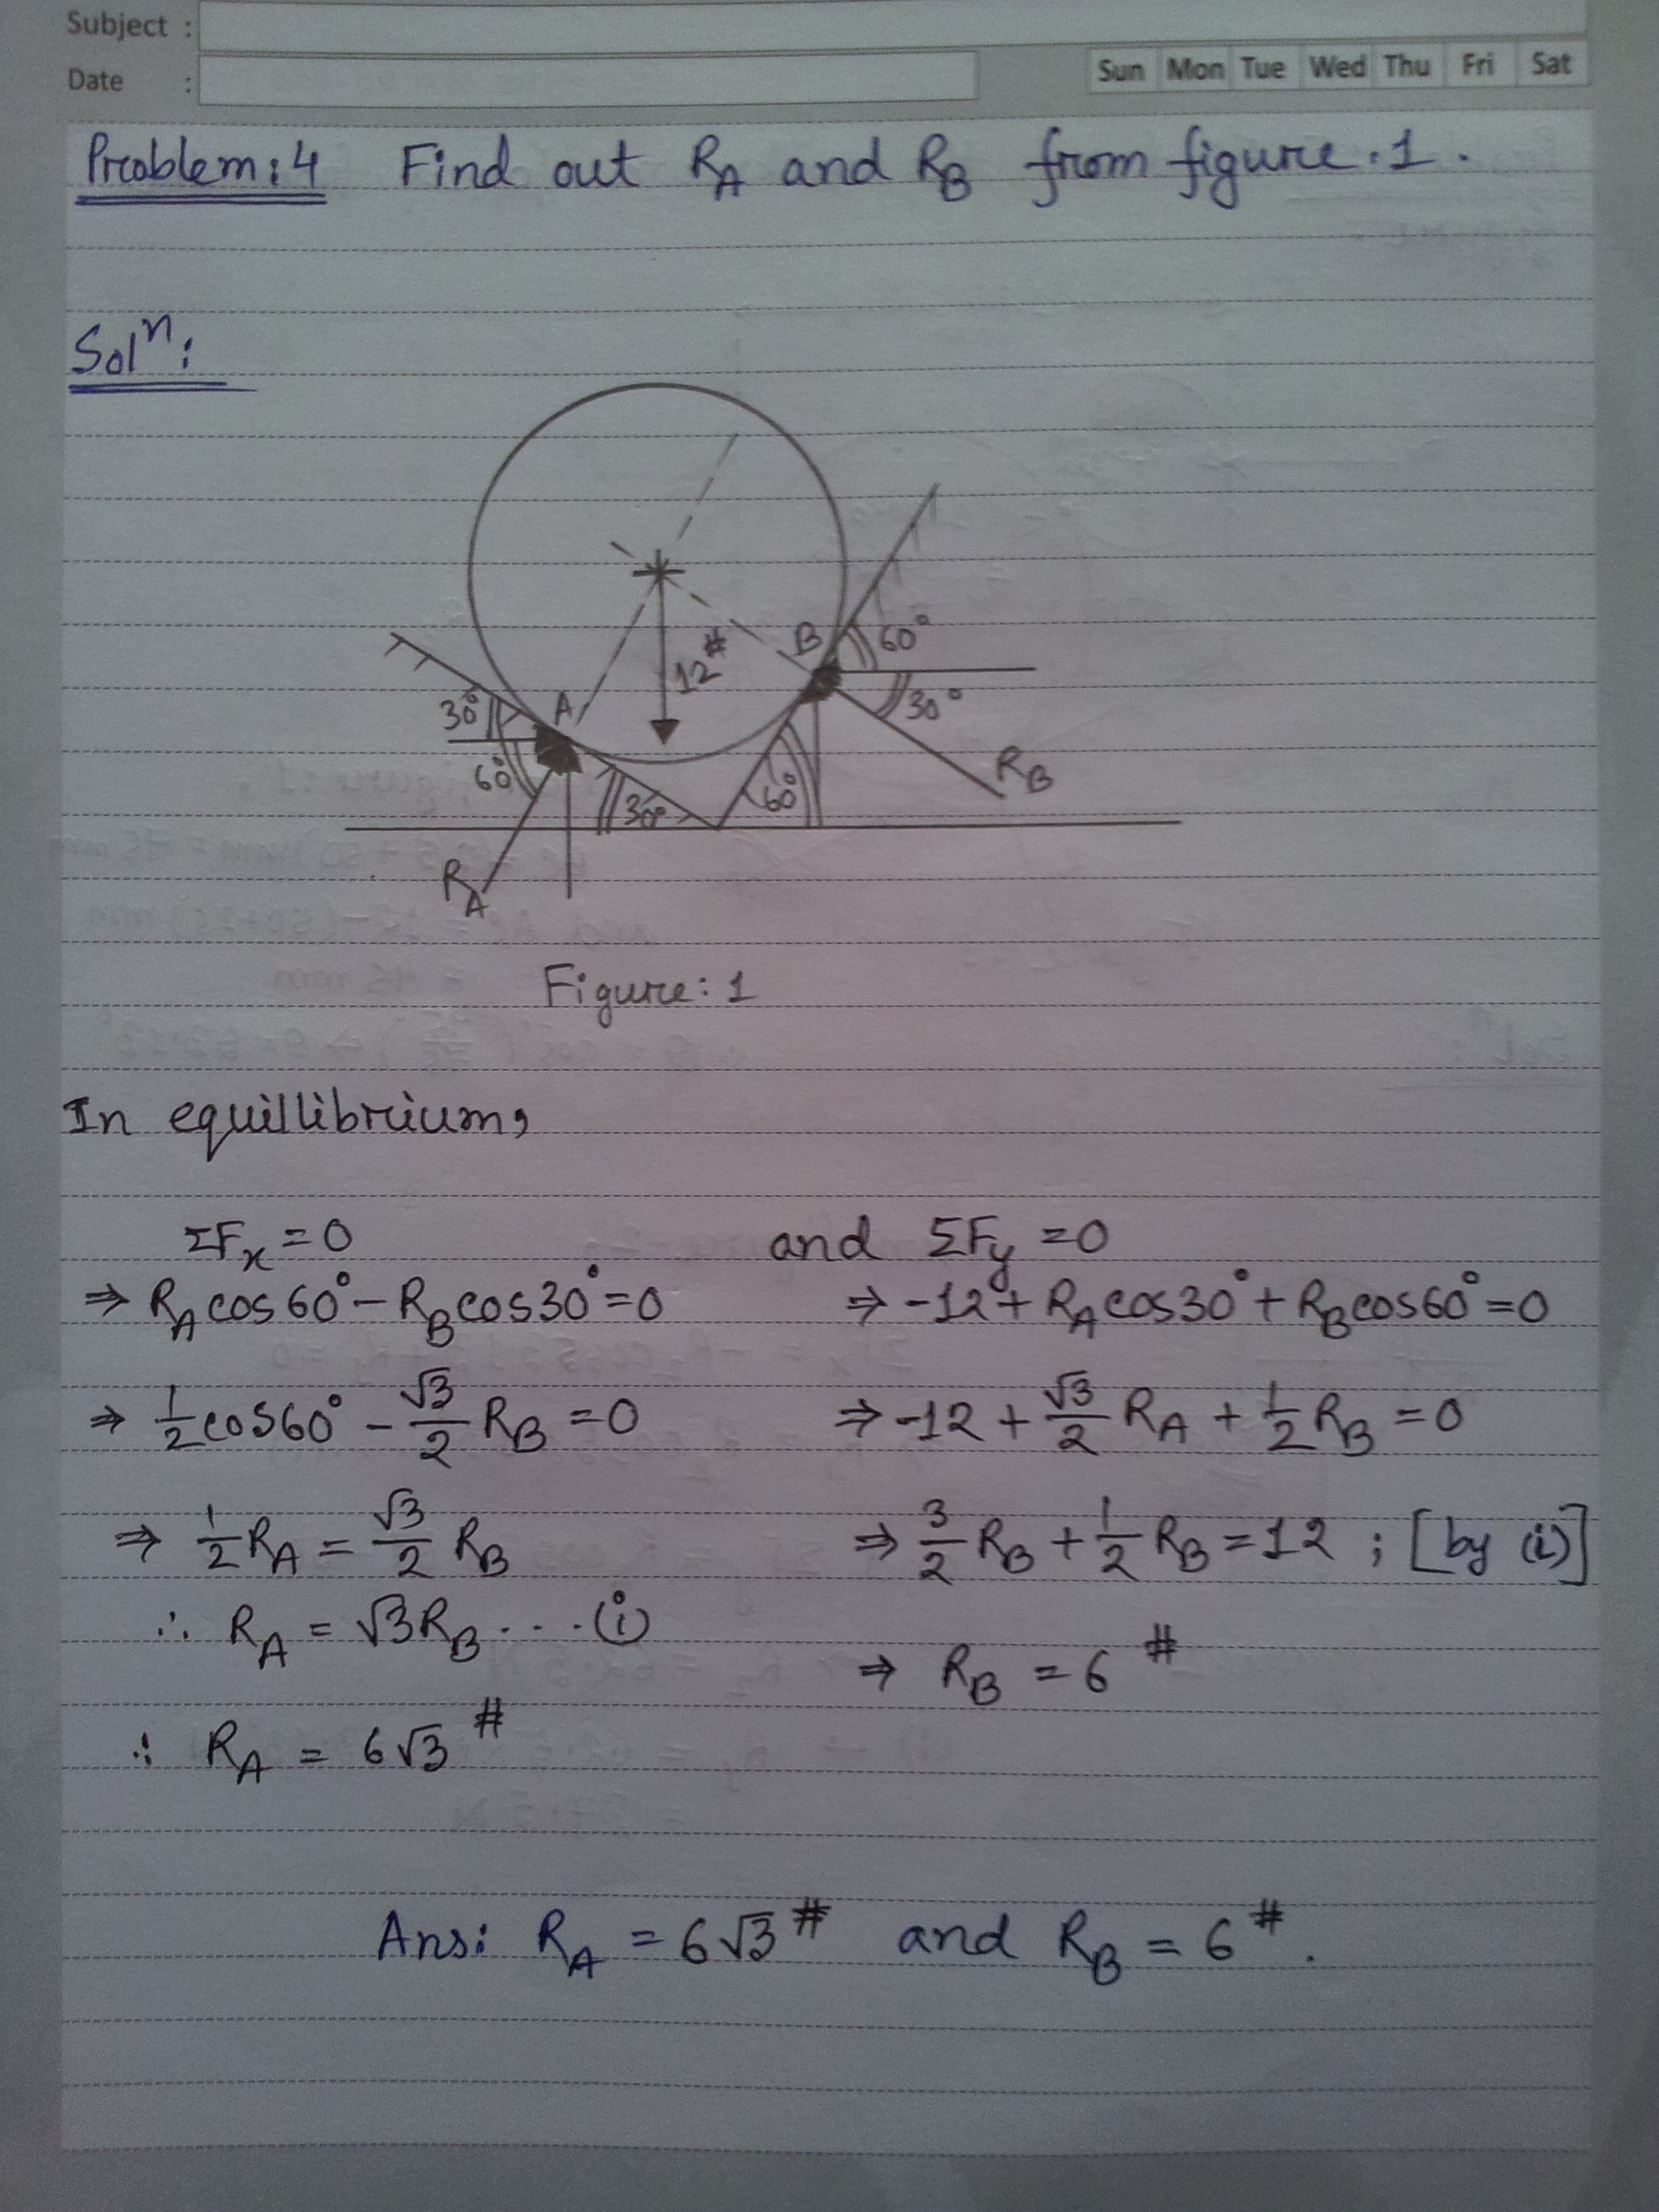 Subject :
Date :
Sun Mon Tue Wed Thu Fri Sat
Problem: 4 Find out R_A and R_B from figure.1.
Solⁿ:
12#
B
60°
30°
R_B
A
30°
60°
30°
60°
R_A
Figure: 1
In equillibrium,
ΣFx = 0
⇒ R_A cos60° - R_B cos30° = 0
⇒ 1/2 cos60° - √3/2 R_B = 0
⇒ 1/2 R_A = √3/2 R_B
∴ R_A = √3R_B ... (i)
∴ R_A = 6√3 #
and ΣFy = 0
⇒ -12 + R_A cos30° + R_B cos60° = 0
⇒ -12 + √3/2 R_A + 1/2 R_B = 0
⇒ 3/2 R_B + 1/2 R_B = 12 ; [by (i)]
⇒ R_B = 6 #
Ans: R_A = 6√3 # and R_B = 6 #.